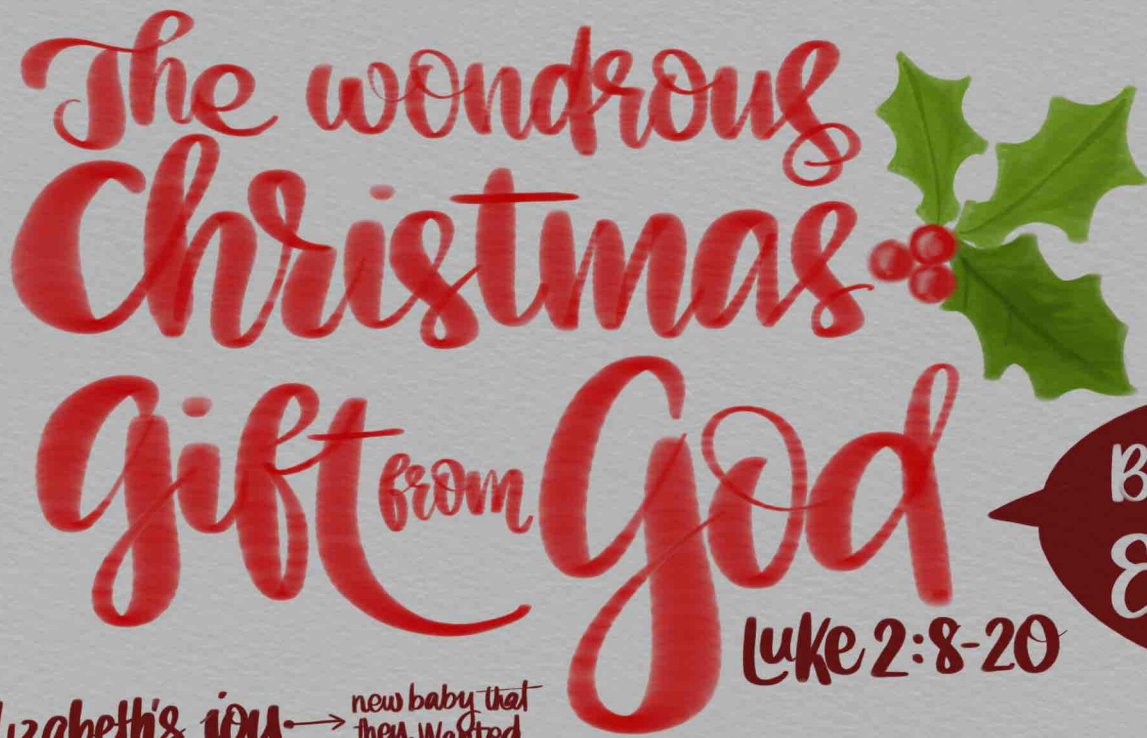 The wondrous
Christmas
Gift from God
Luke 2:8-20
joy → new baby that
they wanted